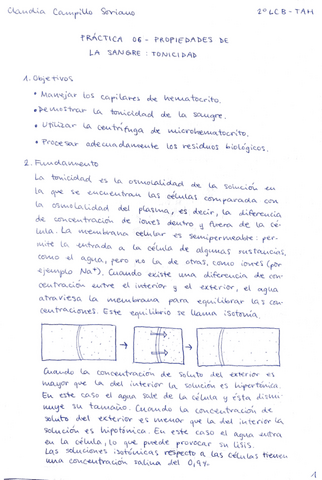 Claudia Campillo Soriano
2º LCB - TAH
PRÁCTICA 06 - PROPIEDADES DE
LA SANGRE: TONICIDAD
1. Objetivos
• Manejar los capilares de hematocrito.
• Demostrar la tonicidad de la sangre.
• Utilizar la centrífuga de microhematocrito.
• Procesar adecuadamente los residuos biológicos.
2. Fundamento
La tonicidad es la osmolalidad de la solución en
la que se encuentran las células comparada con
la osmolalidad del plasma, es decir, la diferencia
de concentración de iones dentro y fuera de la cé-
lula. La membrana celular es semipermeable: per-
mite la entrada a la célula de algunas sustancias,
como el agua, pero no la de otras, como iones (por
ejemplo Na⁺). Cuando existe una diferencia de con-
centración entre el interior y el exterior, el agua
atraviesa la membrana para equilibrar las con-
centraciones. Este equilibrio se llama isotonía.
Cuando la concentración de soluto del exterior es
mayor que la del interior la solución es hipertónica.
En este caso el agua sale de la célula y ésta dismi-
nuye su tamaño. Cuando la concentración de
soluto del exterior es menor que la del interior la
solución es hipotónica. En este caso el agua entra
en la célula, lo que puede provocar su lisis.
Las soluciones isotónicas respecto a las células tienen
una concentración salina del 0,9%.
1